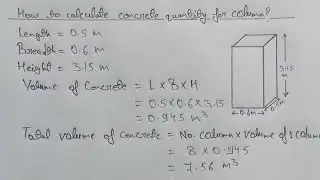 How to calculate concrete quantity for column?
Length = 0.5 m
Breadth = 0.6 m
Height = 3.15 m
Volume of Concrete = L × B × H
= 0.5 × 0.6 × 3.15
= 0.945 m³
Total volume of concrete = No. column × volume of 1 column
= 8 × 0.945
= 7.56 m³
3.15 m
0.6m